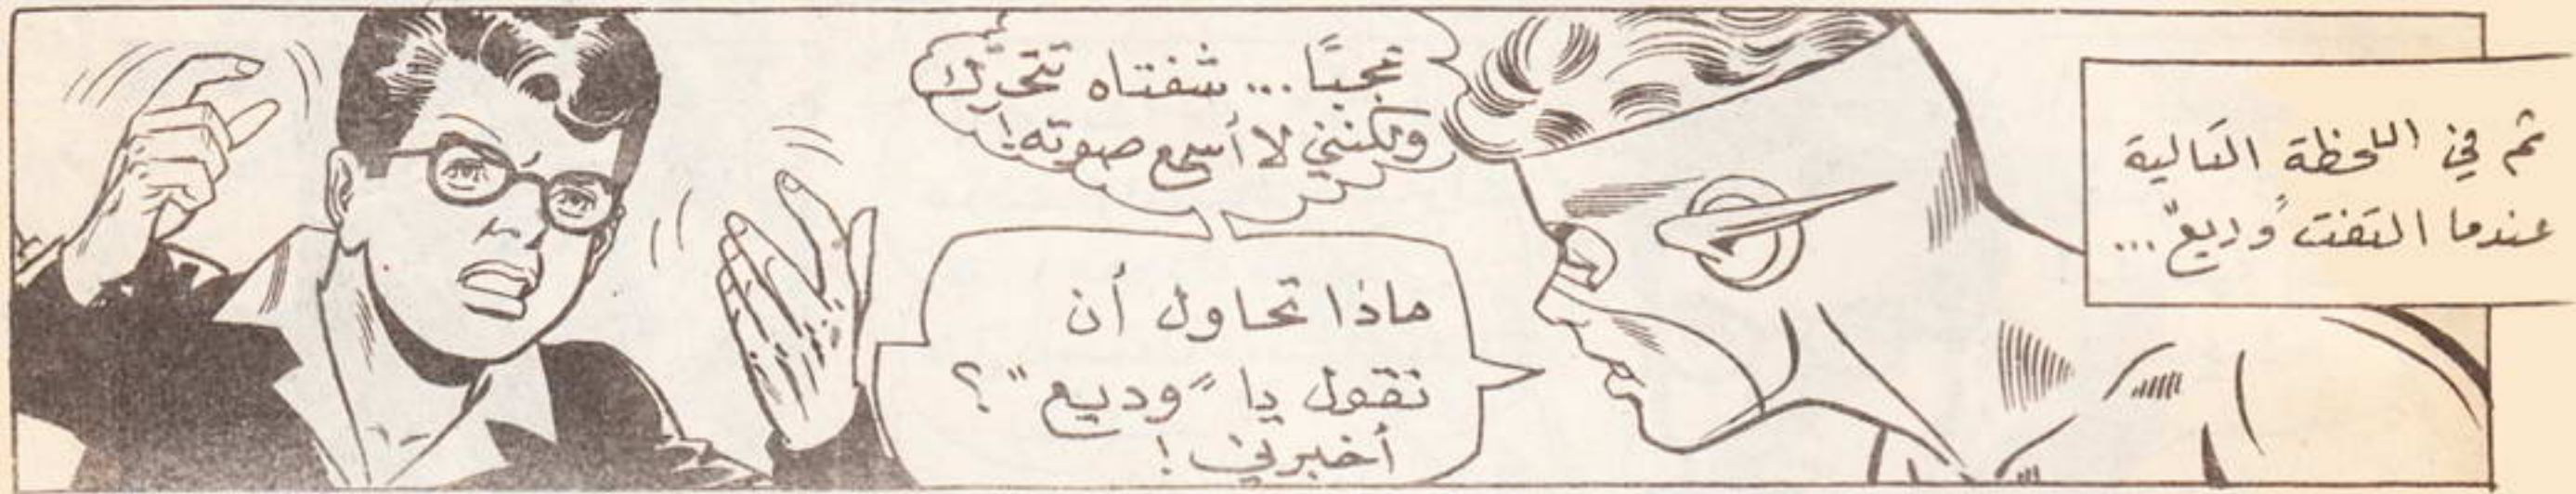 ثم في اللحظة التالية
عندما التفت "وديع"...
عجبًا... شفتاه تتحرّك
ولكنني لا أسمع صوته!
ماذا تحاول أن
تقول يا "وديع"؟
أخبرني!